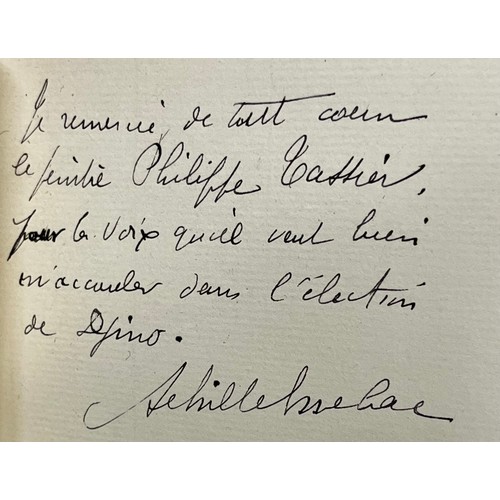 Je remercie de tout coeur
le peintre Philippe Tassier,
pour la voix qu'il veut bien
m'accorder dans l'élection
de Djino.
Achille Essebac